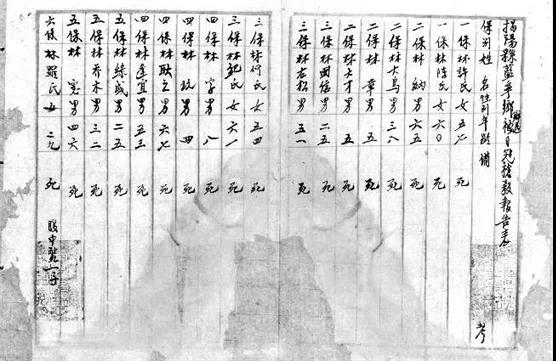 揭陽縣藍鄉被日寇殺報告表
保別姓 名性別年齡備 考
一保林許氏女五七 死
一保林陳氏女六〇 死
二保林 納男六五 死
二保林大烏男三八 死
二保林 章男 五 死
二保林大才男 五 死
三保林國信男二五 死
三保林老松男五一 死
三保林何氏女五四 死
三保林紀氏女六一 死
四保林 男 八 死
四保林 男 四 死
四保林耿之男六七 死
四保林逢宜男五三 死
五保林 盛男二五 死
五保林喬木男三二 死
五保林 寬男四六 死
六保林羅氏女二九 死 腹中孩一子